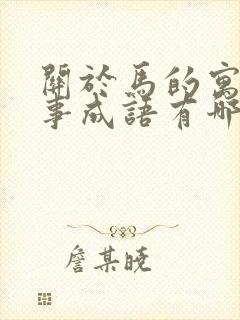 關於馬的寓
事成語有哪
詹某曉